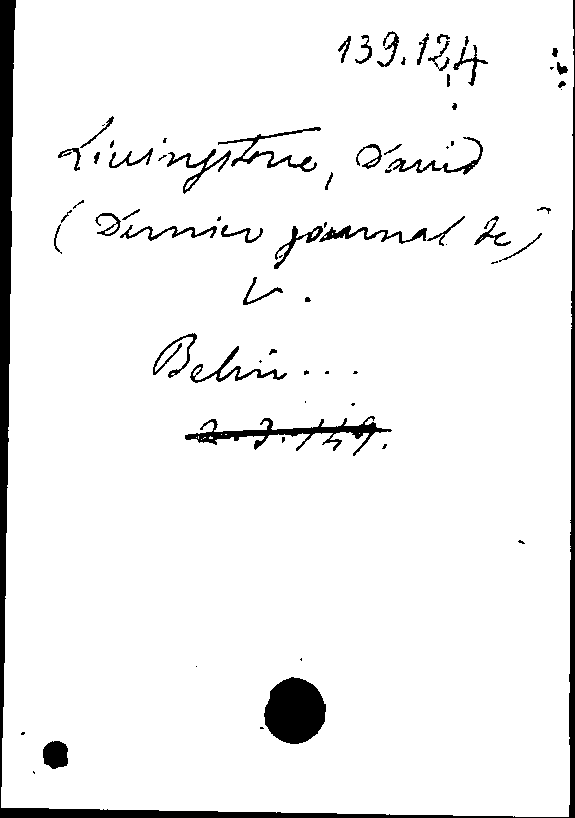 139.124
Livingstone, David
(Dernier journal de)
V.
Belin...
2.3.149.